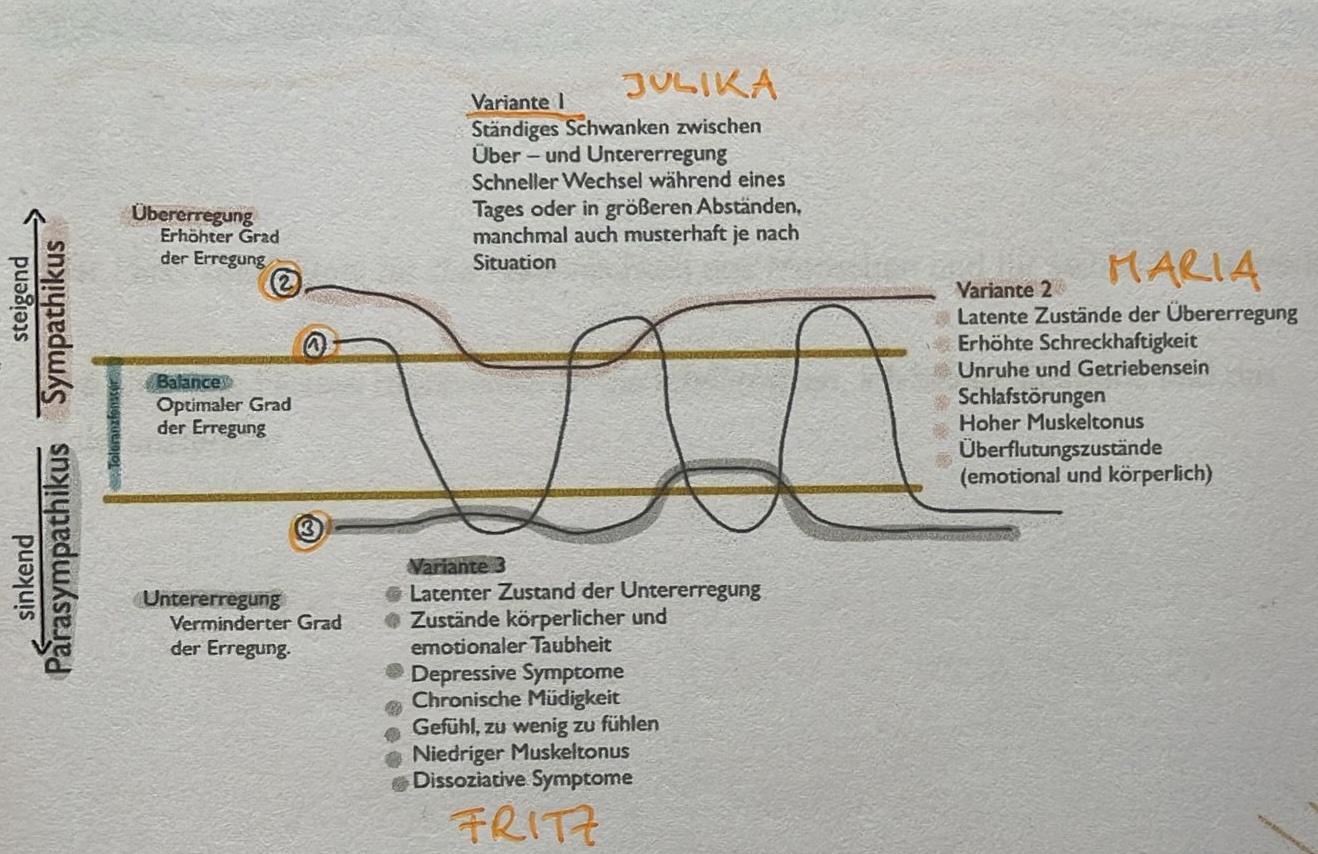 JULIKA
Variante 1
Ständiges Schwanken zwischen
Über – und Untererregung
Schneller Wechsel während eines
Tages oder in größeren Abständen,
manchmal auch musterhaft je nach
Situation
steigend
Sympathikus
Übererregung
Erhöhter Grad
der Erregung
2
1
Toleranzfenster
Balance
Optimaler Grad
der Erregung
MARIA
Variante 2
Latente Zustände der Übererregung
Erhöhte Schreckhaftigkeit
Unruhe und Getriebensein
Schlafstörungen
Hoher Muskeltonus
Überflutungszustände
(emotional und körperlich)
sinkend
Parasympathikus
3
Untererregung
Verminderter Grad
der Erregung.
Variante 3
Latenter Zustand der Untererregung
Zustände körperlicher und
emotionaler Taubheit
Depressive Symptome
Chronische Müdigkeit
Gefühl, zu wenig zu fühlen
Niedriger Muskeltonus
Dissoziative Symptome
FRITZ